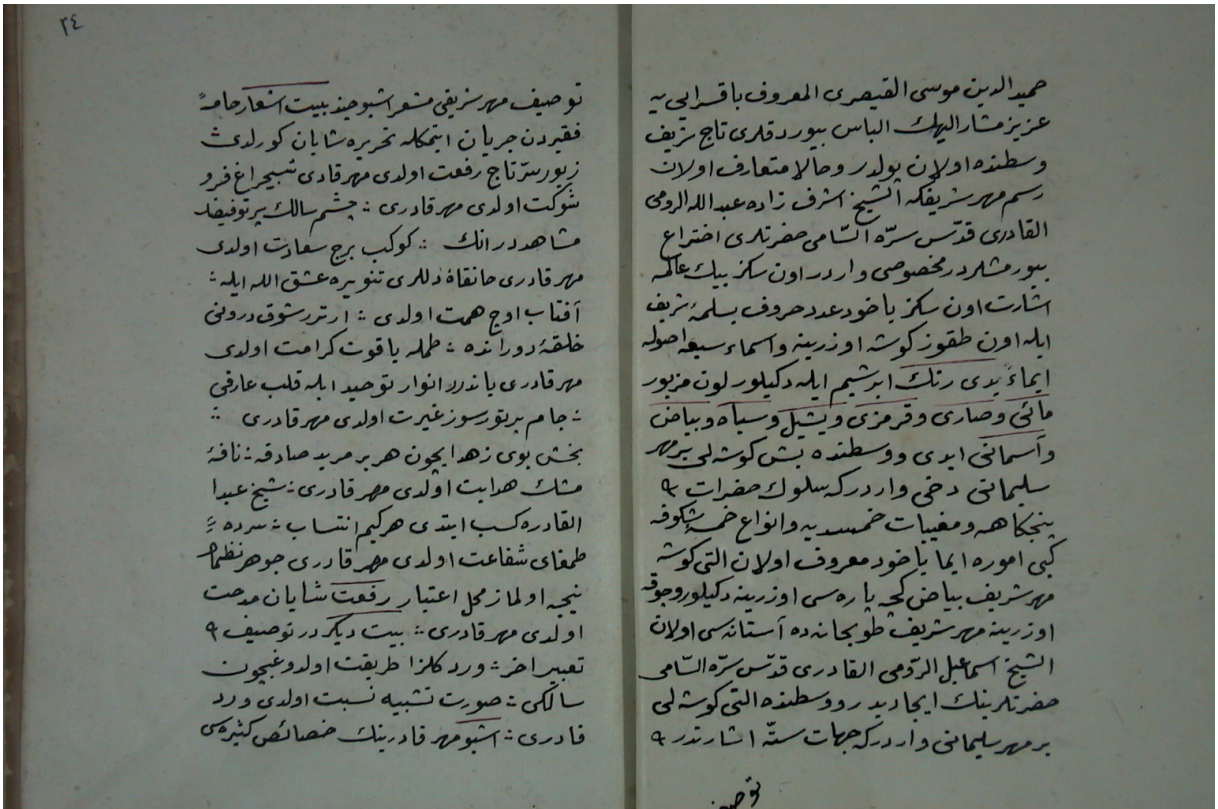 حميد الدين موسى القيصرى المعروف باقسرايى يه
عزيز مشار اليهك الباس بيوردقلرى تاج شريف
وسطنده اولان يولدر وحالا متعارف اولان
رسم مهر شريفكه الشيخ اشرف زاده عبد الله الرومى
القادرى قدّس سرّه السّامى حضرتلرى اختراع
بيورمشلردر مخصوصى واردر اون سكز بيك عالمه
اشارت اون سكز ياخود عدد حروف بسملهٔ شريف
ايله اون طقوز كوشه اوزرينه واسماء سبعه اصوله
ايماءً يدى رنك ابرشيم ايله دكيلور لون مزبور
مائى وصارى وقرمزى ويشيل وسياه وبياض
وآسمانى ايدى ووسطنده بش كوشه لى بر مهر
سليمانى دخى واردر كه سلوك حضرات
پنجكاهه ومغيبات خمسه يه وانواع خمسهٔ شكوفه
كبى اموره ايما ياخود معروف اولان التى كوشه
مهر شريف بياض كچه پاره سى اوزرينه دكيلور وچوقه
اوزرينه مهر شريف طوبخانه ده آستانه سى اولان
الشيخ اسماعيل الرّومى القادرى قدّس سرّه السّامى
حضرتلرينك ايجاديدر ووسطنده التى كوشه لى
بر مهر سليمانى واردر كه جهات ستّه اشارتدر
توصيف
٢٤
توصيف مهر شريفى مشعر اشبو چند بيت اشعار خامهٔ
فقيردن جريان ايتمكله تحريره شايان كورلدى
زيور سرّ تاج رفعت اولدى مهر قادرى شبچراغ فرو
شوكت اولدى مهر قادرى ؞ چشم سالك پر توفيضله
مشاهددر انك ؞ كوكب برج سعادت اولدى
مهر قادرى خانقاهٔ دللرى تنويره عشق الله ايله ؞
آفتاب اوج همت اولدى ؞ ارتر شوق درونى
خلقهٔ دورانده ؞ طمله ياقوت كرامت اولدى
مهر قادرى ياندرر انوار توحيد ايله قلب عارفى
؞ جام پرتو سوز غيرت اولدى مهر قادرى ؞
بخش بوى زهد ايچون هر بر مريد صادقه ؞ نافهٔ
مشك هدايت اولدى مهر قادرى ؞ شيخ عبدا
القادره كسب ايتدى هركيم انتساب ؞ سرده
طمغاى شفاعت اولدى مهر قادرى جوهر نظمله
نيجه اولماز محل اعتبار رفعت شايان مدحت
اولدى مهر قادرى ؞ بيت ديكر در توصيف
تعبير اخر ؞ ورد كلزا طريقت اولدوغيچون
سالكى ؞ صورت تشبيه نسبت اولدى ورد
قادرى ؞ اشبو مهر قادرينك خصائص كثيره سى